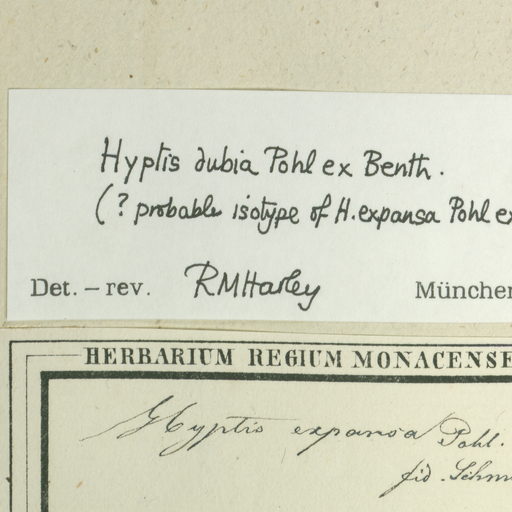 Hyptis dubia Pohl ex Benth.
(? probable isotype of H. expansa Pohl ex
Det. – rev. RMHarley München
HERBARIUM REGIUM MONACENSE
Hyptis expansa Pohl.
fid. Schm